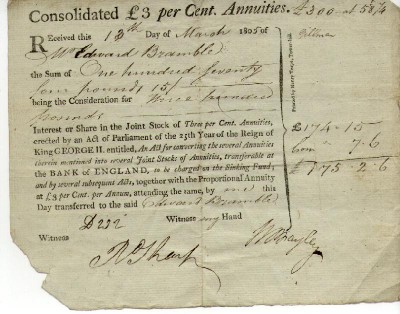 Consolidated £3 per Cent. Annuities. £300 at 58¼
Received this 13th Day of March 1805 of
Mr Edward Bramble
the Sum of One hundred seventy
four pounds 15/
being the Consideration for three hundred
pounds
Interest or Share in the Joint Stock of Three per Cent. Annuities,
erected by an Act of Parliament of the 25th Year of the Reign of
King GEORGE II. entitled, An Act for converting the several Annuities
therein mentioned into several Joint Stocks of Annuities, transferable at
the BANK of ENGLAND, to be charged on the Sinking Fund,
and by several subsequent Acts, together with the Proportional Annuity
at £3 per Cent. per Annum, attending the same, by me this
Day transferred to the said Edward Bramble
Witness my Hand
Witness
£174-15
7-6
£175-2-6